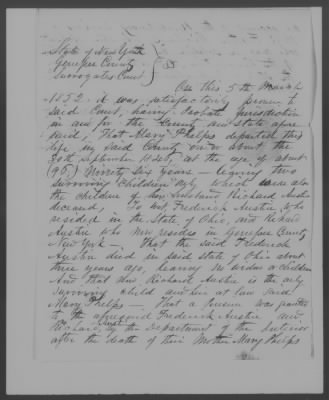 State of New York
Genesee County } SS
Surrogates Court
On this 5th March
1852. it was satisfactorily proven to
said Court, having Probate jurisdiction
in and for the County and State afore
said, That Mary Phelps departed this
life in said County on or about the
30th September 1846, at the age of about
(96) Ninety Six years - leaving two
surviving children only, which were also
the children of her husband Richard Austin
deceased, To wit Frederick Austin who
resided in the State of Ohio, and Richard
Austin who now resides in Genesee County
New York - That the said Frederick
Austin died in said State of Ohio about
three years ago, leaving no widow or children
And that the Richard Austin is the only
surviving child and heir at law said
Mary Phelps - That a Pension was granted
to the aforesaid Frederick Austin and
Richard Austin by the Department of the Interior
after the death of their Mother Mary Phelps